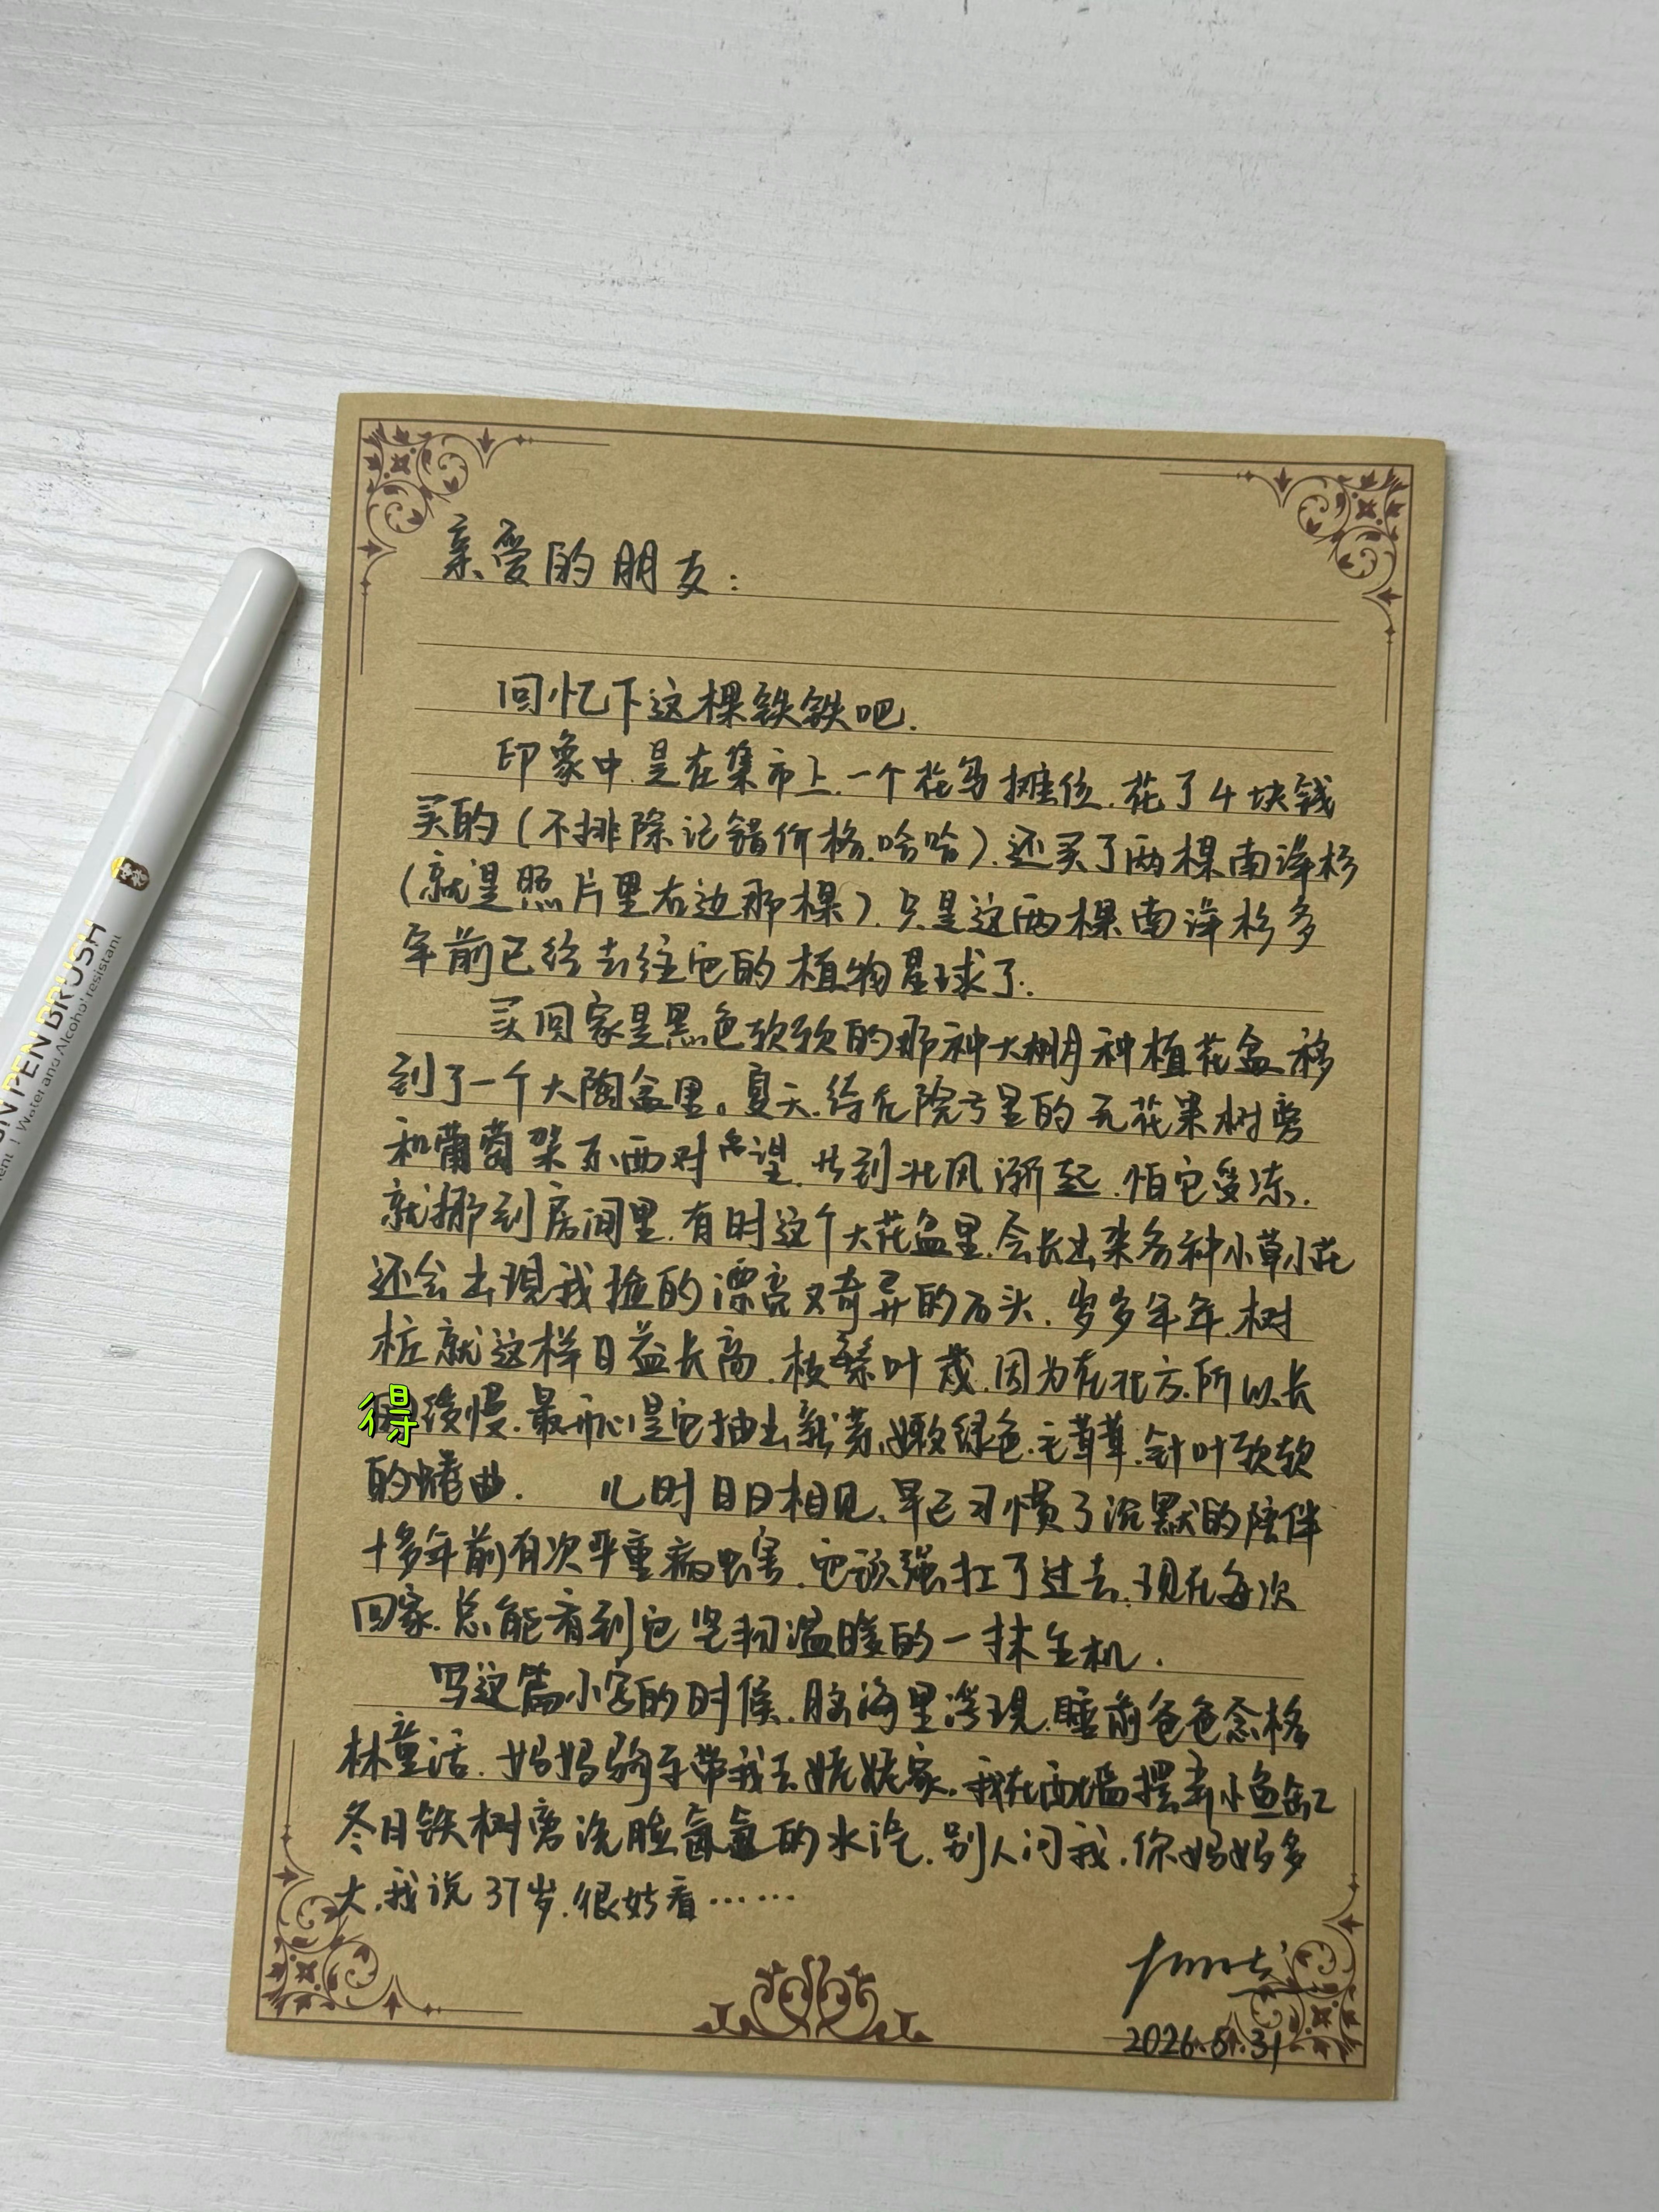 亲爱的朋友:
回忆下这棵铁铁吧.
印象中.是在集市上.一个花鸟摊位.花了4块钱
买的(不排除记错价格.哈哈).还买了两棵南洋杉
(就是照片里右边那棵).只是这两棵南洋杉多
年前已经去往它的植物星球了.
买回家是黑色软软的那种大棚月种植花盆.移
到了一个大陶盆里。夏天.待在院子里的无花果树旁
和葡萄架东西对望.等到北风渐起.怕它受冻.
就挪到房间里.有时这个大花盆里.会长出来各种小草小花
还会出现我捡的漂亮又奇异的石头.岁岁年年.树
桩就这样日益长高.枝繁叶茂.因为在北方.所以长
得缓慢.最开心是它抽出新芽.嫩绿色.毛茸茸.针叶软软
的蜷曲. 儿时日日相见.早已习惯了沉默的陪伴
十多年前有次严重病虫害.它顽强扛了过去.现在每次
回家.总能看到它坚韧温暖的一抹生机.
写这篇小字的时候.脑海里浮现.睡前爸爸念格
林童话.妈妈骑车带我去姥姥家.我在西墙摆弄小鱼缸
冬日铁树旁洗脸氤氲的水汽.别人问我.你妈妈多
大.我说37岁.很好看……
2026.5.31
PEN BRUSH
Water and Alcohol resistant